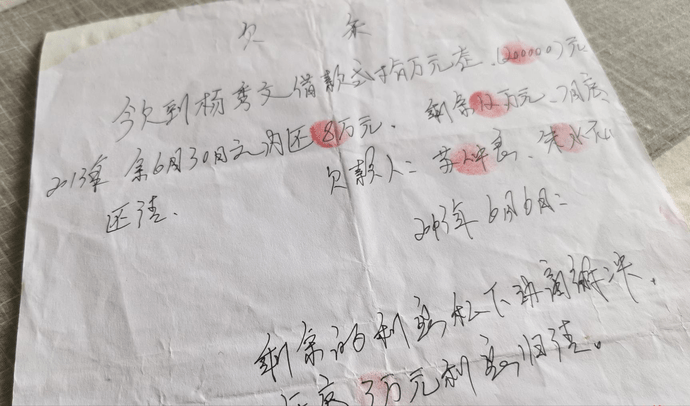 欠 条
今欠到杨秀文借款贰拾万元整.(200000)元
2013年 余6月30日之内还8万元. 剩余12万元.7月底
还清.
欠款人:
2013年6月6日
剩余的利息私下协商解决.
底 3万元利息归清。